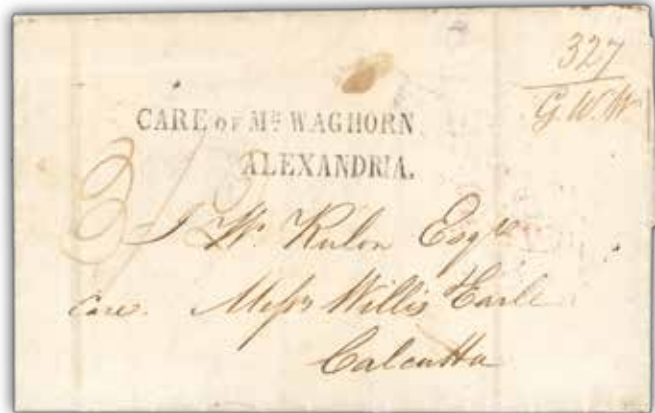 327
G. W. W
CARE OF Mr WAGHORN
ALEXANDRIA.
J W. Rulon Esqre
care. Messrs Willis Earle
Calcutta